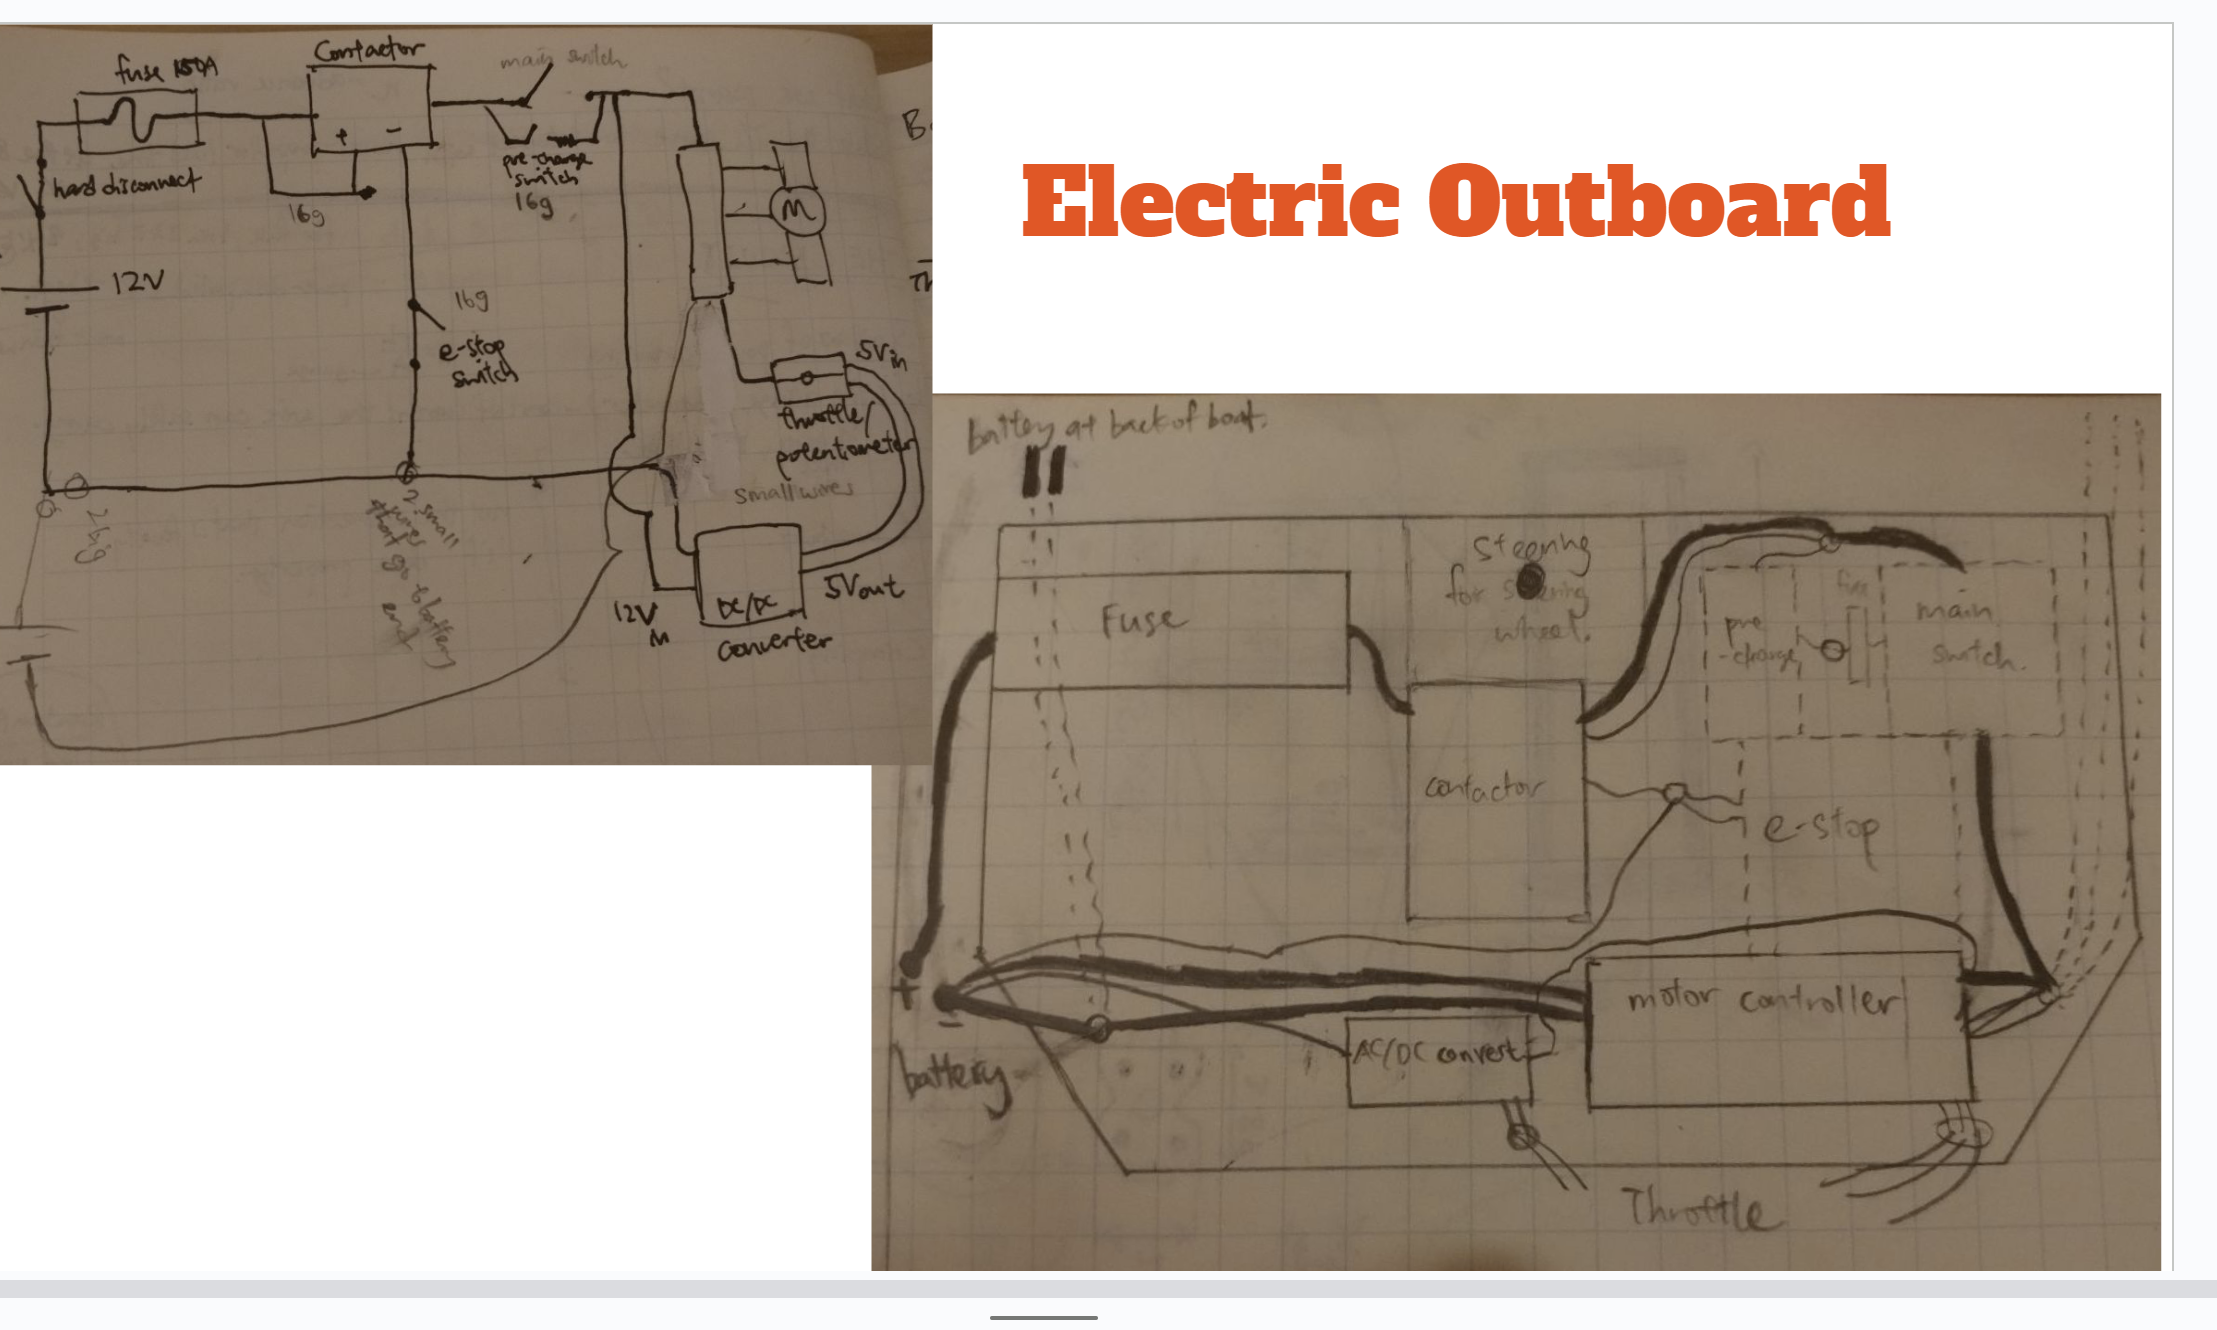 Electric Outboard
fuse 150A
Contactor
main switch
+ -
hard disconnect
pre-charge
switch
16g
16g
M
12V
16g
e-stop
switch
5Vin
throttle/
potentiometer
small wires
2 big
2 small
wires
that go to battery
end
12V
in
DC/DC
converter
5Vout
B
Th
battery at back of boat.
Steering
for steering
wheel.
Fuse
pre
-charge
fuse
main
switch.
contactor
e-stop
+
-
battery
motor controller
AC/DC convert
Throttle